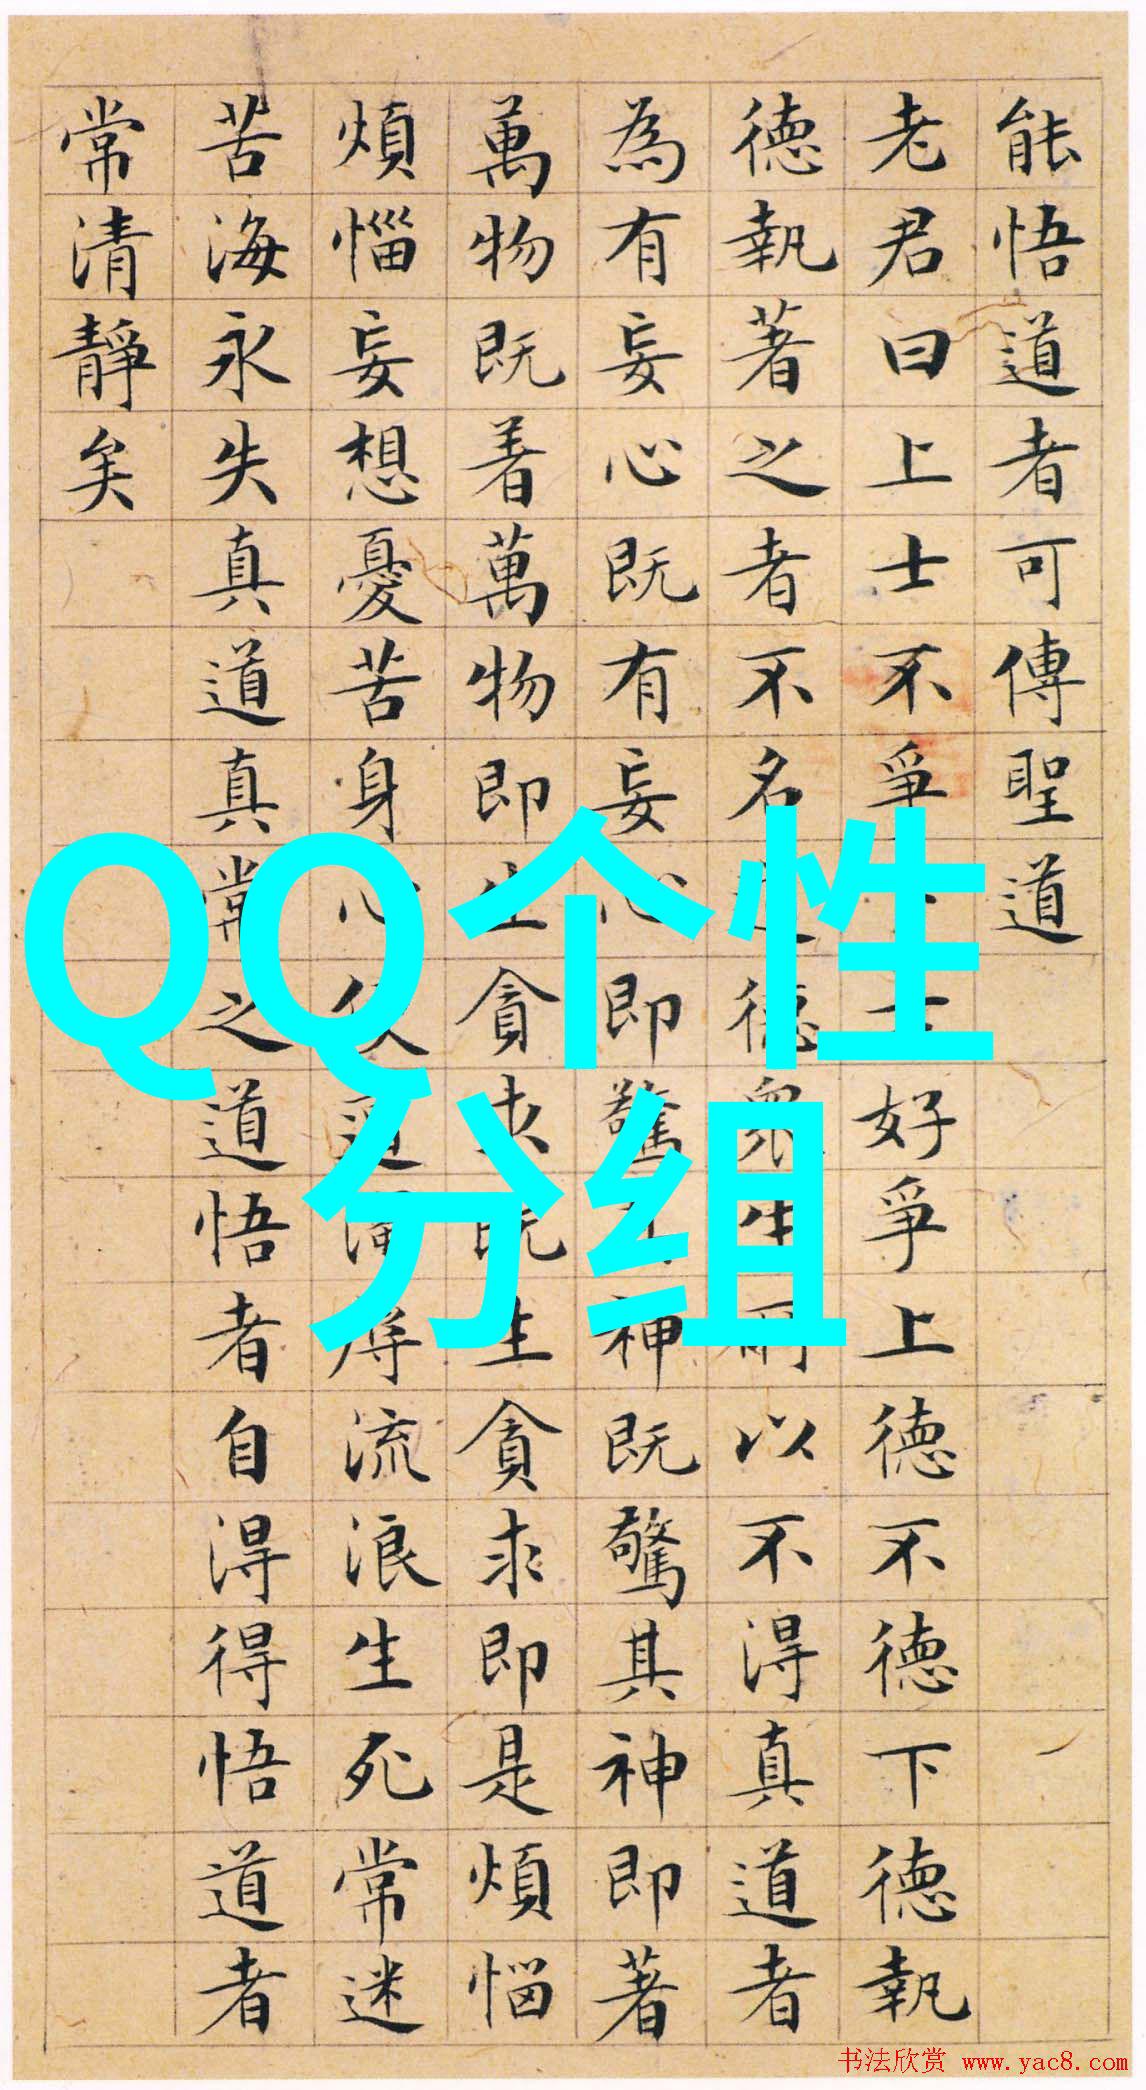 能悟道者可傳聖道
老君曰上士不爭好爭上德不德下德執
德執著之者不名道德眾生所以不得真道者
為有妄心既有妄心即驚其神既驚其神即著
萬物既着萬物即生貪求既生貪求即是煩惱
煩惱妄想憂苦身心辱流浪生死常迷
苦海永失真道真常之道悟者自得得悟道者
常清靜矣
QQ个性
分组
书法欣赏 www.yac8.com